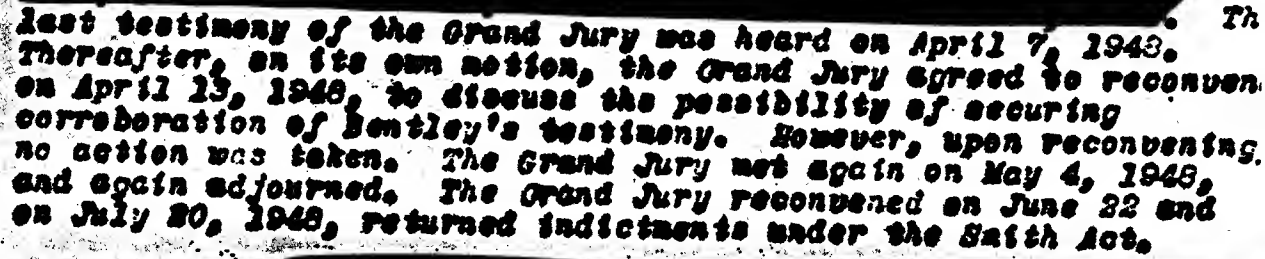 . Th
last testimony of the Grand Jury was heard on April 7, 1948.
Thereafter, on its own motion, the Grand Jury agreed to reconven
on April 13, 1948, to discuss the possibility of securing
corroboration of Bentley's testimony. However, upon reconvening,
no action was taken. The Grand Jury met again on May 4, 1948,
and again adjourned. The Grand Jury reconvened on June 22 and
on July 20, 1948, returned indictments under the Smith Act.